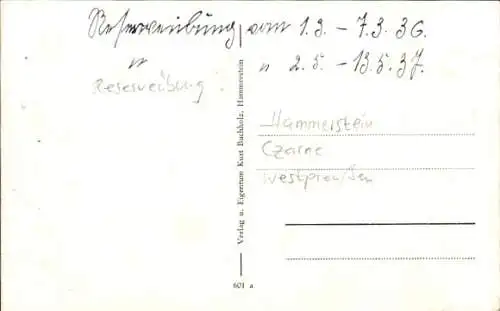 Reserveübung vom 1.3. – 7.3.36.
" " 2.5. – 13.5.37.
Reserveübung
Hammerstein
Czarne
Westpreußen
Verlag u. Eigentum Kurt Buchholz, Hammerstein
601 a